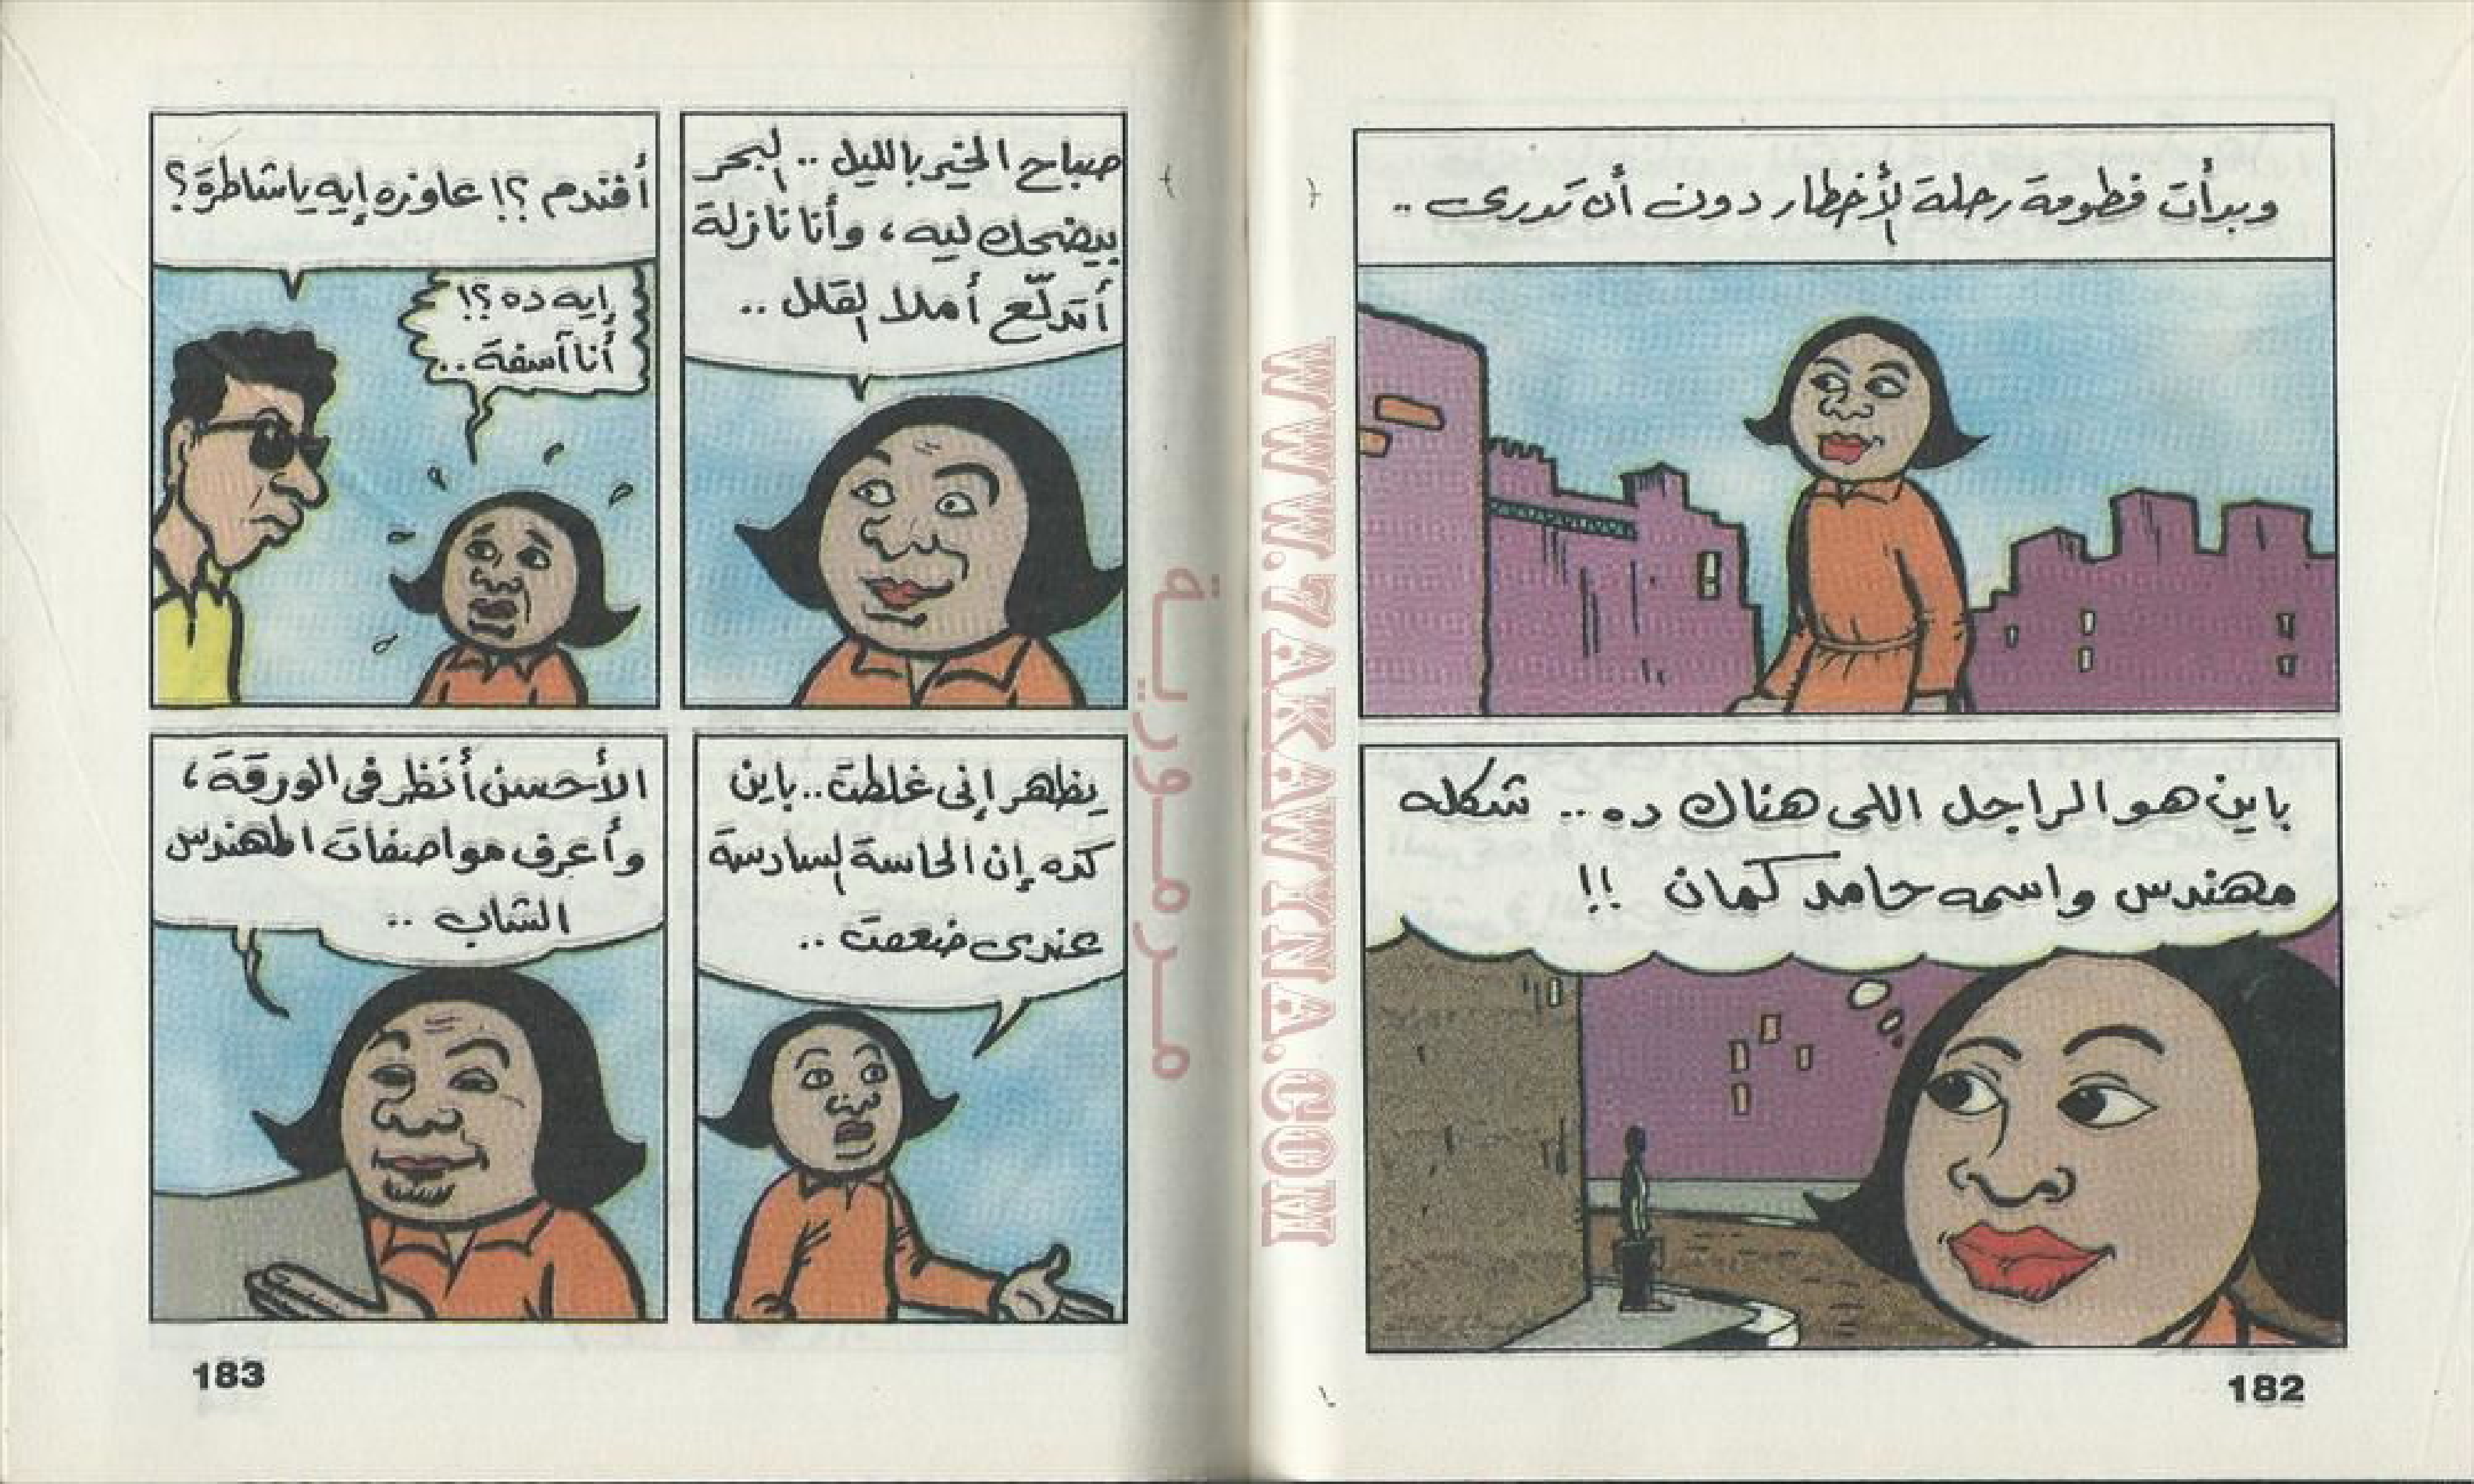 وبدأت فطومة رحلة الأخطار دون أن تدرى ..
باين هو الراجل اللى هناك ده .. شكله
مهندس واسمه حامد كمان !!
182
صباح الخير بالليل .. البحر
بيضحك ليه ، وأنا نازلة
أتدلّع أملا القلل ..
أفندم ؟! عاوزه إيه ياشاطرة ؟
إيه ده ؟!
أنا آسفة ..
يظهر إنى غلطت .. باين
كده إن الحاسة السادسة
عندى ضعفت ..
الأحسن أنظر فى الورقة ،
وأعرف مواصفات المهندس
الشاب ..
183
مرمورية
WWW.7AKAWINA.COM